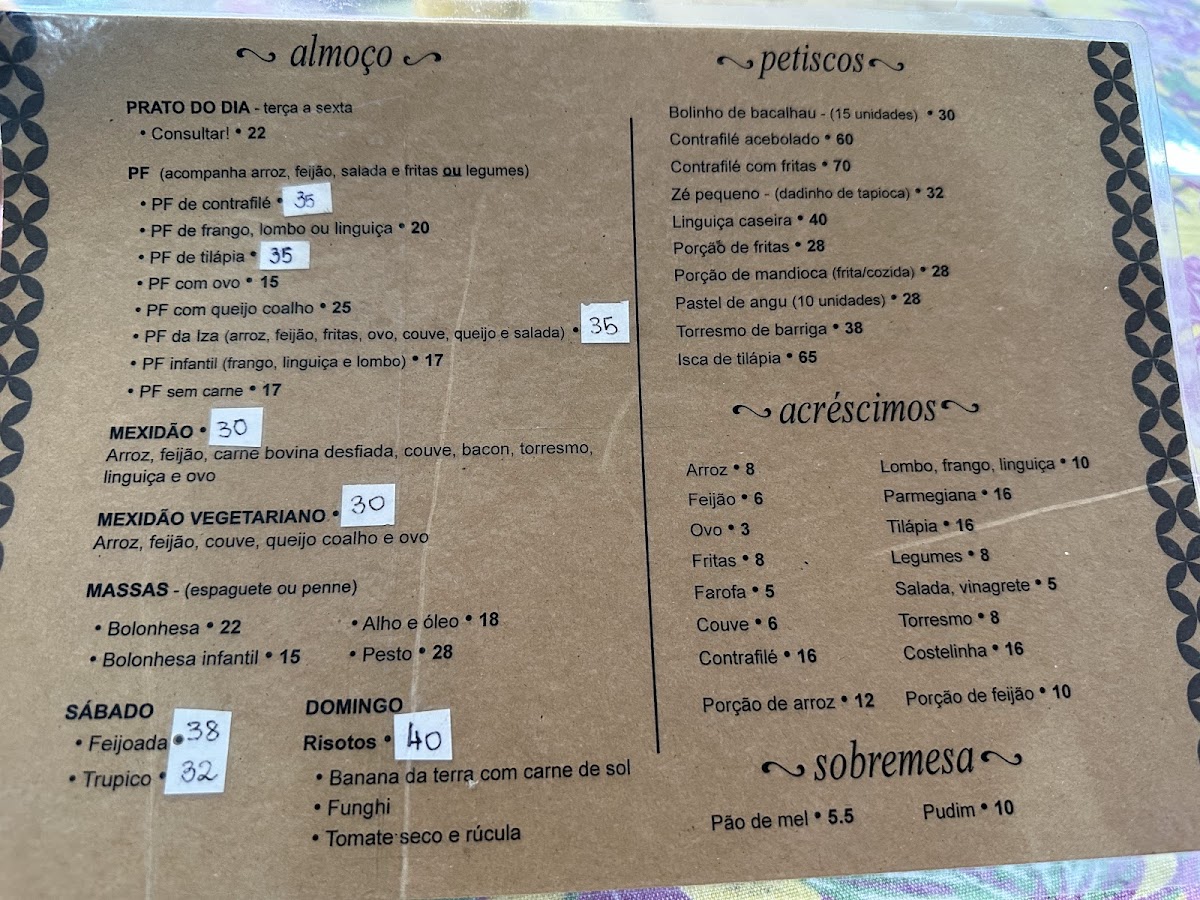 almoço
PRATO DO DIA - terça a sexta
• Consultar! • 22
PF (acompanha arroz, feijão, salada e fritas ou legumes)
• PF de contrafilé • 35
• PF de frango, lombo ou linguiça • 20
• PF de tilápia • 35
• PF com ovo • 15
• PF com queijo coalho • 25
• PF da Iza (arroz, feijão, fritas, ovo, couve, queijo e salada) • 35
• PF infantil (frango, linguiça e lombo) • 17
• PF sem carne • 17
MEXIDÃO • 30
Arroz, feijão, carne bovina desfiada, couve, bacon, torresmo,
linguiça e ovo
MEXIDÃO VEGETARIANO • 30
Arroz, feijão, couve, queijo coalho e ovo
MASSAS - (espaguete ou penne)
• Bolonhesa • 22
• Alho e óleo • 18
• Bolonhesa infantil • 15
• Pesto • 28
SÁBADO
• Feijoada • 38
• Trupico • 32
DOMINGO
Risotos • 40
• Banana da terra com carne de sol
• Funghi
• Tomate seco e rúcula
petiscos
Bolinho de bacalhau - (15 unidades) • 30
Contrafilé acebolado • 60
Contrafilé com fritas • 70
Zé pequeno - (dadinho de tapioca) • 32
Linguiça caseira • 40
Porção de fritas • 28
Porção de mandioca (frita/cozida) • 28
Pastel de angu (10 unidades) • 28
Torresmo de barriga • 38
Isca de tilápia • 65
acréscimos
Arroz • 8
Feijão • 6
Ovo • 3
Fritas • 8
Farofa • 5
Couve • 6
Contrafilé • 16
Porção de arroz • 12
Lombo, frango, linguiça • 10
Parmegiana • 16
Tilápia • 16
Legumes • 8
Salada, vinagrete • 5
Torresmo • 8
Costelinha • 16
Porção de feijão • 10
sobremesa
Pão de mel • 5.5
Pudim • 10